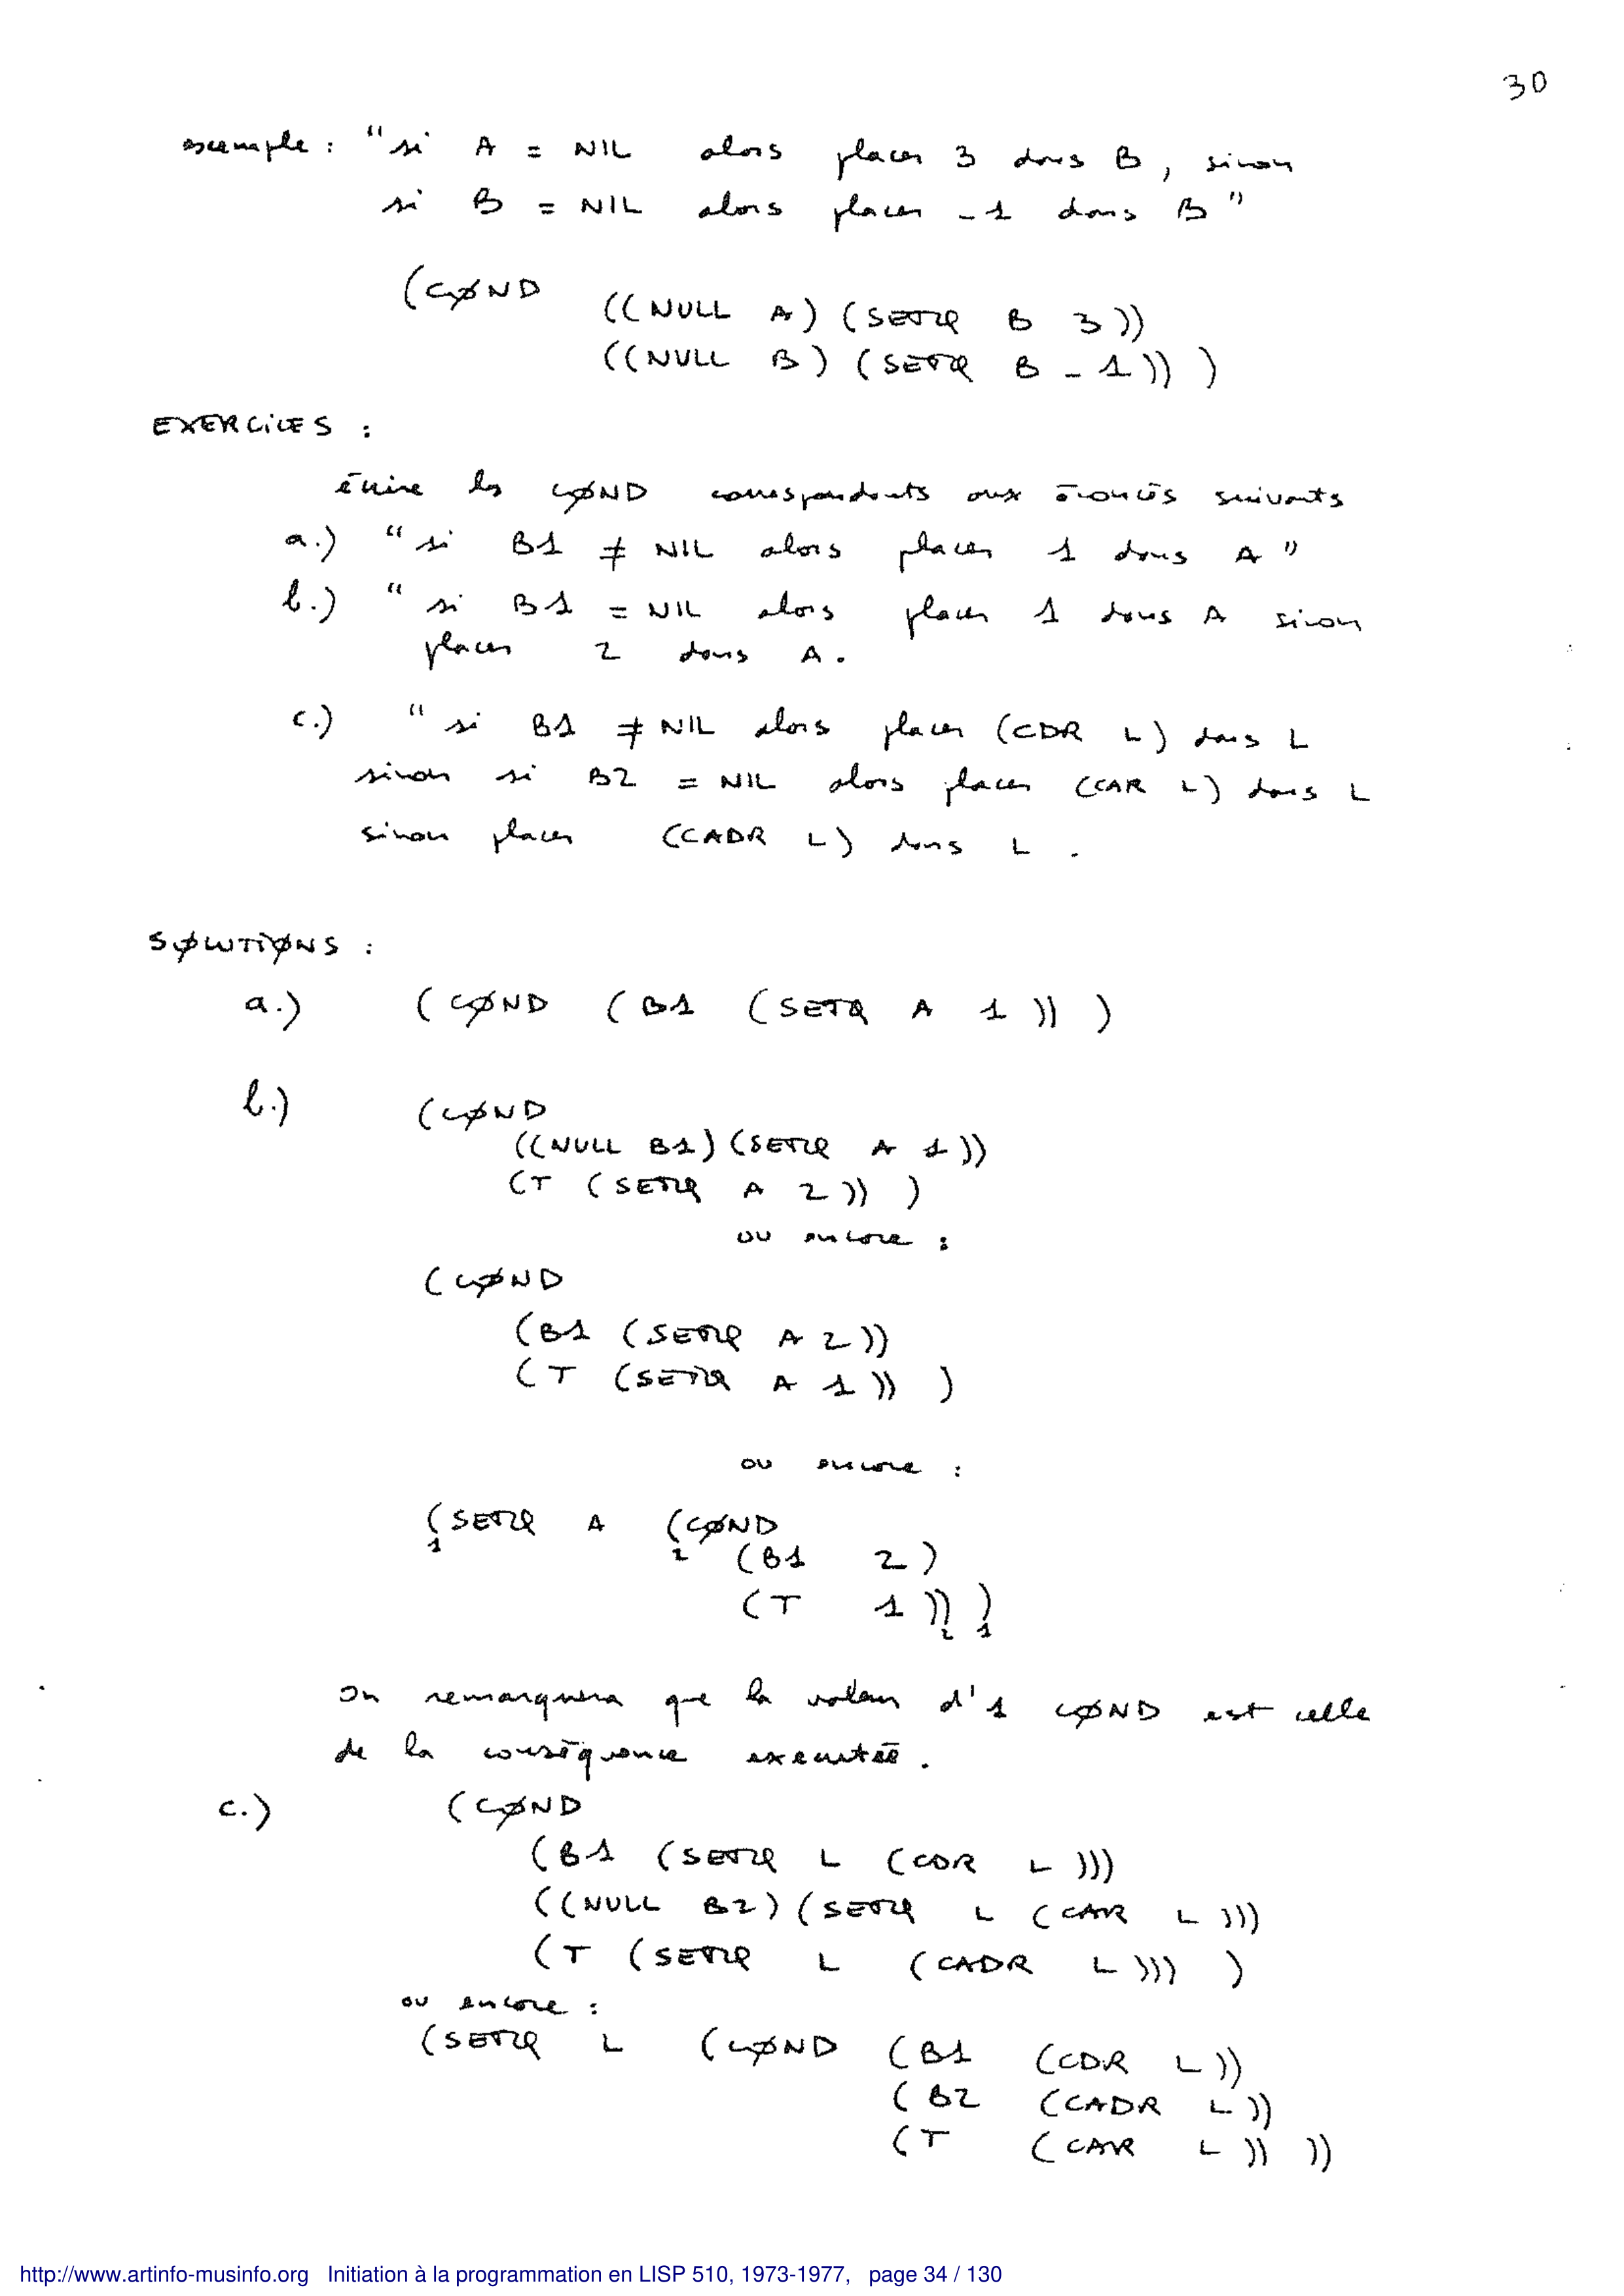 30
exemple : "si A = NIL alors placer 3 dans B, sinon
si B = NIL alors placer -1 dans B"
(CØND
((NULL A) (SETQ B 3))
((NULL B) (SETQ B -1)) )
EXERCiCES :
écrire les CØND correspondants aux énoncés suivants
a.) "si B1 ≠ NIL alors placer 1 dans A"
b.) "si B1 = NIL alors placer 1 dans A sinon
placer 2 dans A.
c.) "si B1 ≠ NIL alors placer (CDR L) dans L
sinon si B2 = NIL alors placer (CAR L) dans L
sinon placer (CADR L) dans L .
SØLUTiØNS :
a.) (CØND (B1 (SETQ A 1 )) )
b.) (CØND
((NULL B1) (SETQ A 1))
(T (SETQ A 2)) )
ou encore :
(CØND
(B1 (SETQ A 2))
(T (SETQ A 1)) )
ou encore :
(SETQ A (CØND
1 2 (B1 2)
(T 1 )) )
2 1
On remarquera que la valeur d'1 CØND est celle
de la conséquence executée .
c.) (CØND
(B1 (SETQ L (CDR L )))
((NULL B2) (SETQ L (CAR L )))
(T (SETQ L (CADR L ))) )
ou encore :
(SETQ L (CØND (B1 (CDR L ))
(B2 (CADR L ))
(T (CAR L )) ))
http://www.artinfo-musinfo.org Initiation à la programmation en LISP 510, 1973-1977, page 34 / 130